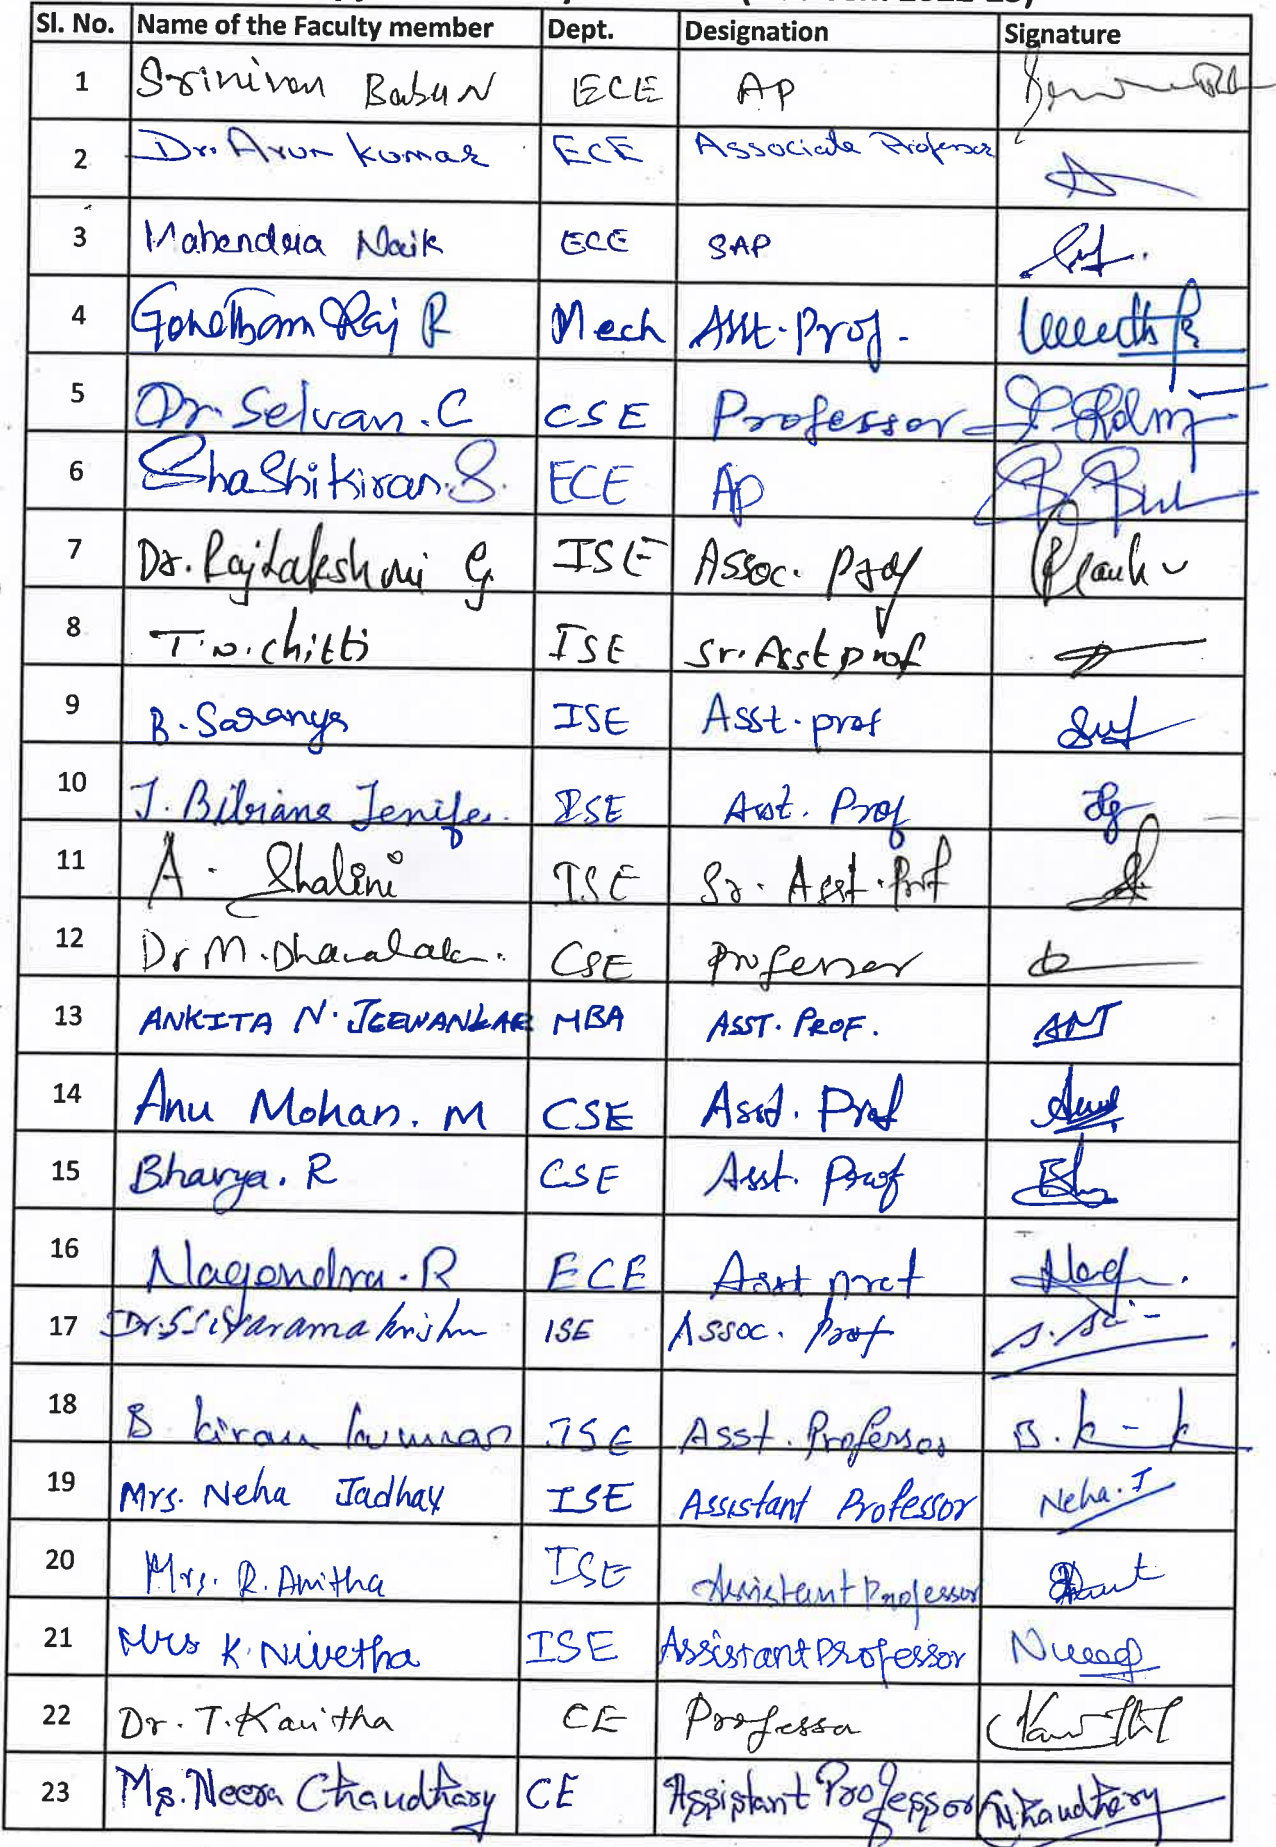 Sl. No. Name of the Faculty member Dept. Designation Signature
1 Srinivan Babu N ECE AP
2 Dr. Arun Kumar ECE Associate Professor
3 Mahendra Naik ECE SAP
4 Gohetham Raj R Mech Asst. Prof.
5 Dr. Selvan. C CSE Professor
6 Shashikiran. S. ECE AP
7 Dr. Rajlakshmi G ISE Assoc. Prof
8 T.N. Chitti ISE Sr. Asst prof
9 B. Saranya ISE Asst. prof
10 J. Bibiana Jenifer ISE Asst. Prof
11 A. Shalini ISE Sr. Asst. Prof
12 Dr M. CSE Professor
13 ANKITA N. JEEWANKAR MBA ASST. PROF.
14 Anu Mohan. M CSE Asst. Prof
15 Bhavya. R CSE Asst. Prof
16 Nagendra. R ECE Asst prof
17 Dr. S Sitaramakrishn ISE Assoc. Prof
18 B kiran kumar ISE Asst. Professor B. K - k
19 Mrs. Neha Jadhav ISE Assistant Professor Neha. J
20 Mrs. R. Anitha ISE Assistant Professor
21 Mrs K. Nivetha ISE Assistant Professor
22 Dr. T. Kavitha CE Professor
23 Ms. Neera Chaudhary CE Assistant Professor N Chaudhary